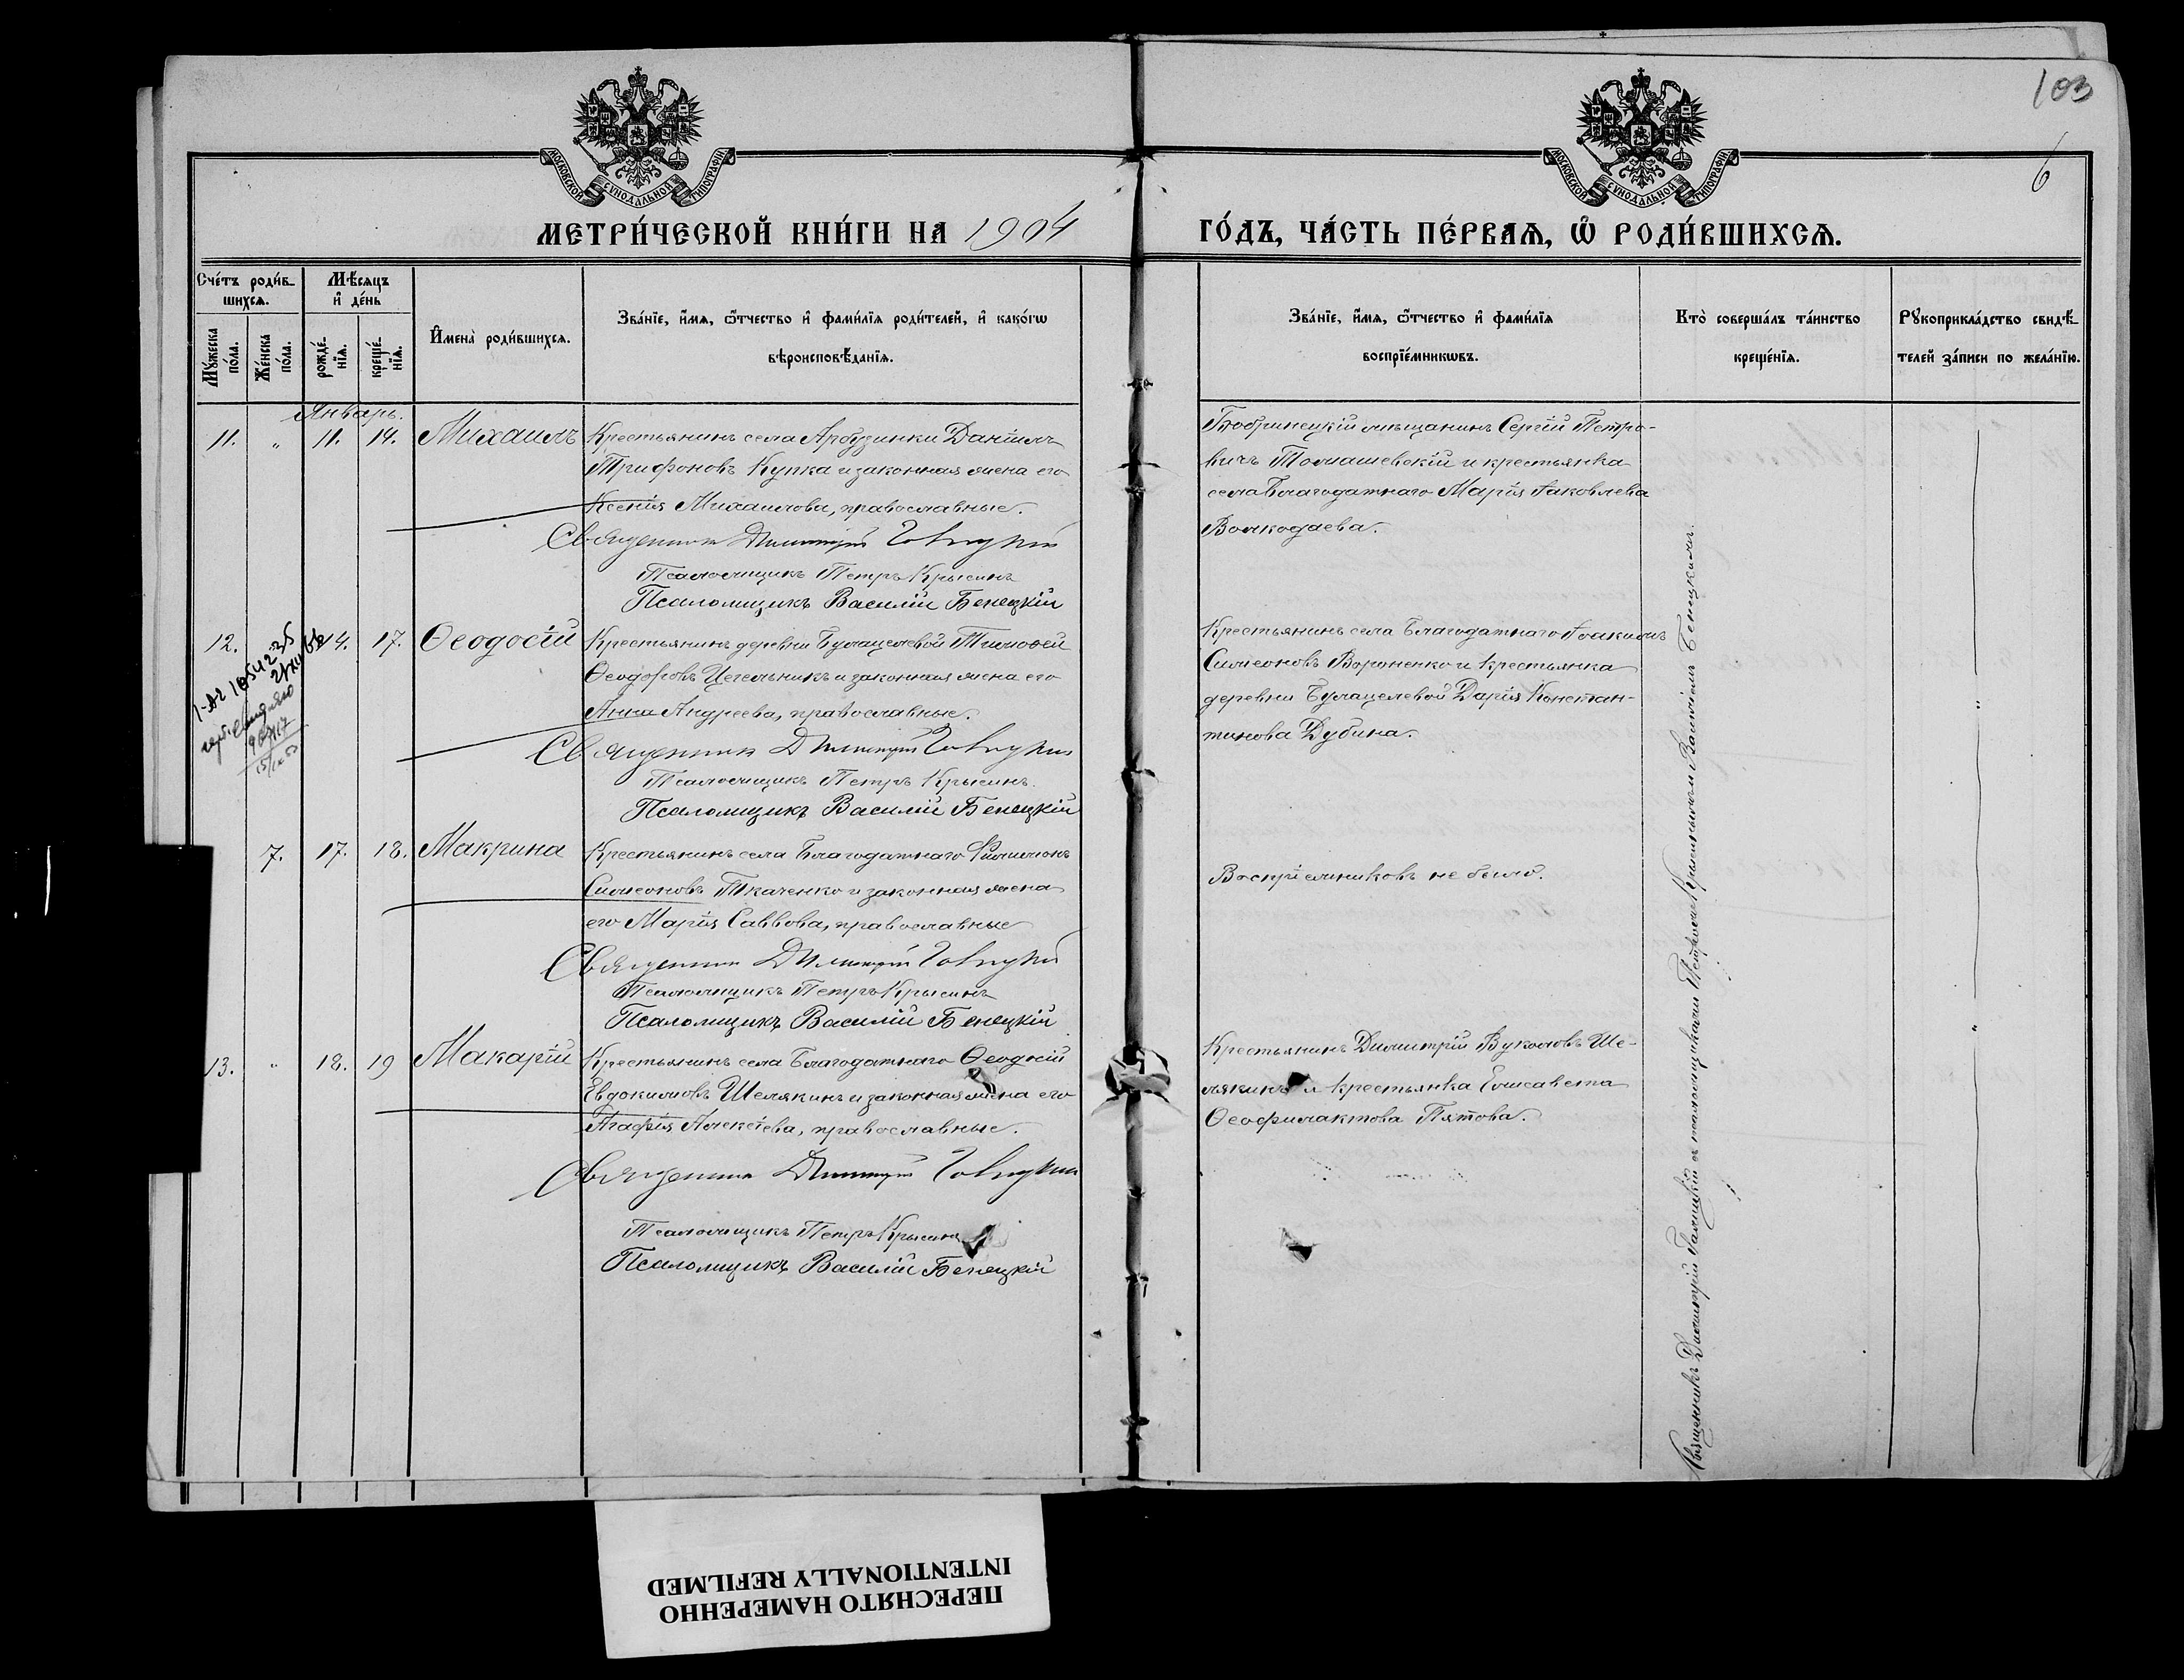 103
6
МОСКОВСКОЙ СУНОДАЛЬНОЙ ТИПОГРАФІИ
МОСКОВСКОЙ СУНОДАЛЬНОЙ ТИПОГРАФІИ
МЕТРИ́ЧЕСКОЙ КНИ́ГИ НА 1904
ГО́ДЪ, ЧА́СТЬ ПЕ́РВАѦ, Ѡ РОДИ́ВШИХСѦ.
Сче́тъ роди́в-
шихсѧ.
Мѣ́сяцъ
и҆ де́нь
Мꙋ́жеска
по́ла.
Же́нска
по́ла.
рожде́-
нїѧ.
креще́-
нїѧ.
И҆мена̀ роди́вшихсѧ.
Зва́нїе, и҆́мѧ, ѻ҆́тчество и҆ фами́лїѧ роди́телей, и҆ како́гѡ
вѣроисповѣ́данїѧ.
Зва́нїе, и҆́мѧ, ѻ҆́тчество и҆ фами́лїѧ
воспрїе́мникѡвъ.
Кто̀ соверша́лъ та́инство
креще́нїѧ.
Рꙋкоприкла́дство свидѣ́-
телей за́писи по жела́нїю.
Январь.
11. " 11. 14. Михаилъ
Крестьянинъ села Арбузинки Даніилъ
Трифоновъ Купка и законная жена его
Ксенія Михаилова, православные.
Священникъ Димитрій
Псаломщикъ Петръ Крысинъ
Псаломщикъ Василій Бенецкій
Бобринецкій мѣщанинъ Сергій Петро-
вичъ Томашевскій и крестьянка
села Благодатнаго Марія Іаковлева
Волкодаева.
12. 14. 17. Ѳеодосій
Крестьянинъ деревни Булацелевой Тимоѳей
Ѳеодоровъ Цегельникъ и законная жена его
Анна Андреева, православные.
Священникъ Димитрій
Псаломщикъ Петръ Крысинъ.
Псаломщикъ Василій Бенецкій
Крестьянинъ села Благодатнаго Іоакимъ
Симеоновъ Вороненко и крестьянка
деревни Булацелевой Дарія Констан-
тинова Дубина.
7. 17. 18. Макрина
Крестьянинъ села Благодатнаго Филимонъ
Симеоновъ Ткаченко и законная жена
его Марія Саввова, православные
Священникъ Димитрій
Псаломщикъ Петръ Крысинъ
Псаломщикъ Василій Бенецкій
Воспріемниковъ не было.
13. " 18. 19 Макарій
Крестьянинъ села Благодатнаго Ѳеодосій
Евдокимовъ Шелякинъ и законная жена его
Агафія Алексіева, православные.
Священникъ Димитрій
Псаломщикъ Петръ Крысинъ
Псаломщикъ Василій Бенецкій
Крестьянинъ Димитрій Вуколовъ Ше-
лякинъ и крестьянка Елисавета
Ѳеофилактова Пятова.
Священникъ Димитрій Галицкій съ псаломщиками Петромъ Крысинымъ и Василіемъ Бенецкимъ.
ПЕРЕСНЯТО НАМЕРЕННО
INTENTIONALLY REFILMED